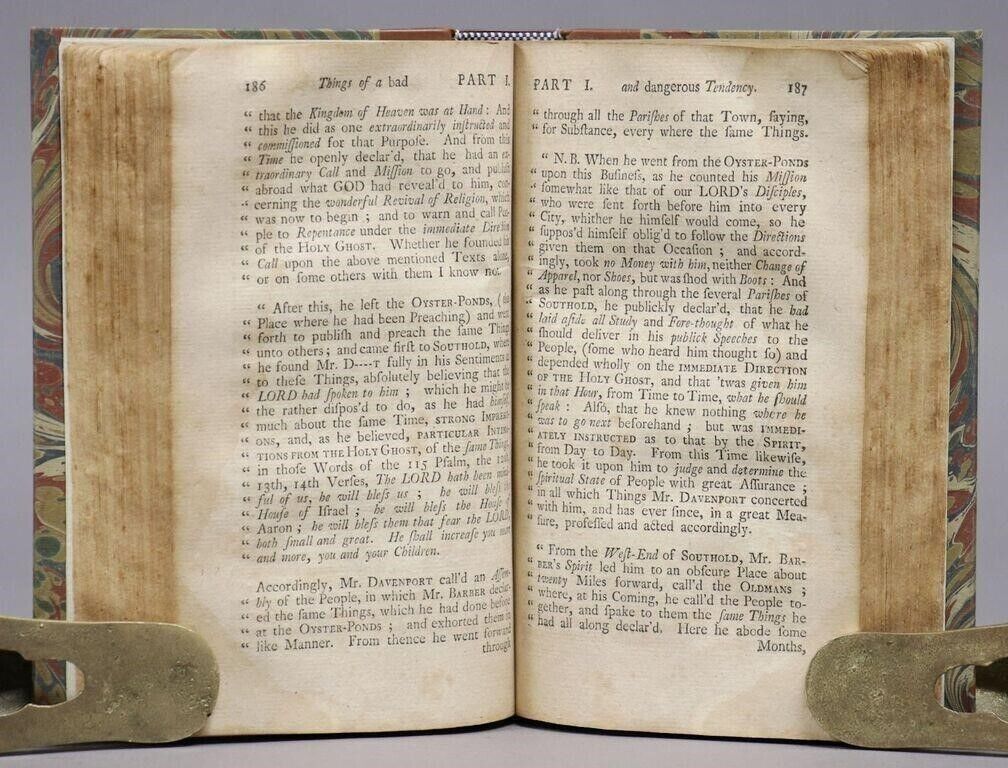 186 Things of a bad PART I.
“ that the Kingdom of Heaven was at Hand: And
“ this he did as one extraordinarily inſtructed and
“ commiſſioned for that Purpoſe. And from this
“ Time he openly declar'd, that he had an ex-
“ traordinary Call and Miſſion to go, and publiſh
“ abroad what GOD had reveal'd to him, con-
“ cerning the wonderful Revival of Religion, which
“ was now to begin ; and to warn and call Peo-
“ ple to Repentance under the immediate Direction
“ of the HOLY GHOST. Whether he founded his
“ Call upon the above mentioned Texts alone,
“ or on ſome others with them I know not.
“ After this, he left the OYSTER-PONDS, (the
“ Place where he had been Preaching) and went
“ forth to publiſh and preach the ſame Things
“ unto others ; and came firſt to SOUTHOLD, where
“ he found Mr. D----T fully in his Sentiments as
“ to theſe Things, abſolutely believing that the
“ LORD had ſpoken to him ; which he might be
“ the rather diſpos'd to do, as he had himſelf,
“ much about the ſame Time, STRONG IMPRESSI-
“ ONS, and, as he believed, PARTICULAR INTIMA-
“ TIONS FROM THE HOLY GHOST, of the ſame Thing,
“ in thoſe Words of the 115 Pſalm, the 12th,
“ 13th, 14th Verſes, The LORD hath been mind-
“ ful of us, he will bleſs us ; he will bleſs the
“ Houſe of Iſrael ; he will bleſs the Houſe of
“ Aaron ; he will bleſs them that fear the LORD,
“ both ſmall and great. He ſhall increaſe you more
“ and more, you and your Children.
Accordingly, Mr. DAVENPORT call'd an Aſſem-
“ bly of the People, in which Mr. BARBER declar-
“ ed the ſame Things, which he had done before
“ at the OYSTER-PONDS ; and exhorted them in
“ like Manner. From thence he went forward
through
PART I. and dangerous Tendency. 187
“ through all the Pariſhes of that Town, ſaying,
“ for Subſtance, every where the ſame Things.
“ N.B. When he went from the OYSTER-PONDS
“ upon this Buſineſs, as he counted his Miſſion
“ ſomewhat like that of our LORD's Diſciples,
“ who were ſent forth before him into every
“ City, whither he himſelf would come, ſo he
“ ſuppos'd himſelf oblig'd to follow the Directions
“ given them on that Occaſion ; and accord-
“ ingly, took no Money with him, neither Change of
“ Apparel, nor Shoes, but was ſhod with Boots : And
“ as he paſt along through the ſeveral Pariſhes of
“ SOUTHOLD, he publickly declar'd, that he had
“ laid aſide all Study and Fore-thought of what he
“ ſhould deliver in his publick Speeches to the
“ People, (ſome who heard him thought ſo) and
“ depended wholly on the IMMEDIATE DIRECTION
“ OF THE HOLY GHOST, and that 'twas given him
“ in that Hour, from Time to Time, what he ſhould
“ ſpeak : Alſo, that he knew nothing where he
“ was to go next beforehand ; but was IMMEDI-
“ ATELY INSTRUCTED as to that by the SPIRIT,
“ from Day to Day. From this Time likewiſe,
“ he took it upon him to judge and determine the
“ ſpiritual State of People with great Aſſurance ;
“ in all which Things Mr. DAVENPORT concerted
“ with him, and has ever ſince, in a great Mea-
“ ſure, profeſſed and acted accordingly.
“ From the Weſt-End of SOUTHOLD, Mr. BAR-
“ BER's Spirit led him to an obſcure Place about
“ twenty Miles forward, call'd the OLDMANS ;
“ where, at his Coming, he call'd the People to-
“ gether, and ſpake to them the ſame Things he
“ had all along declar'd. Here he abode ſome
Months,